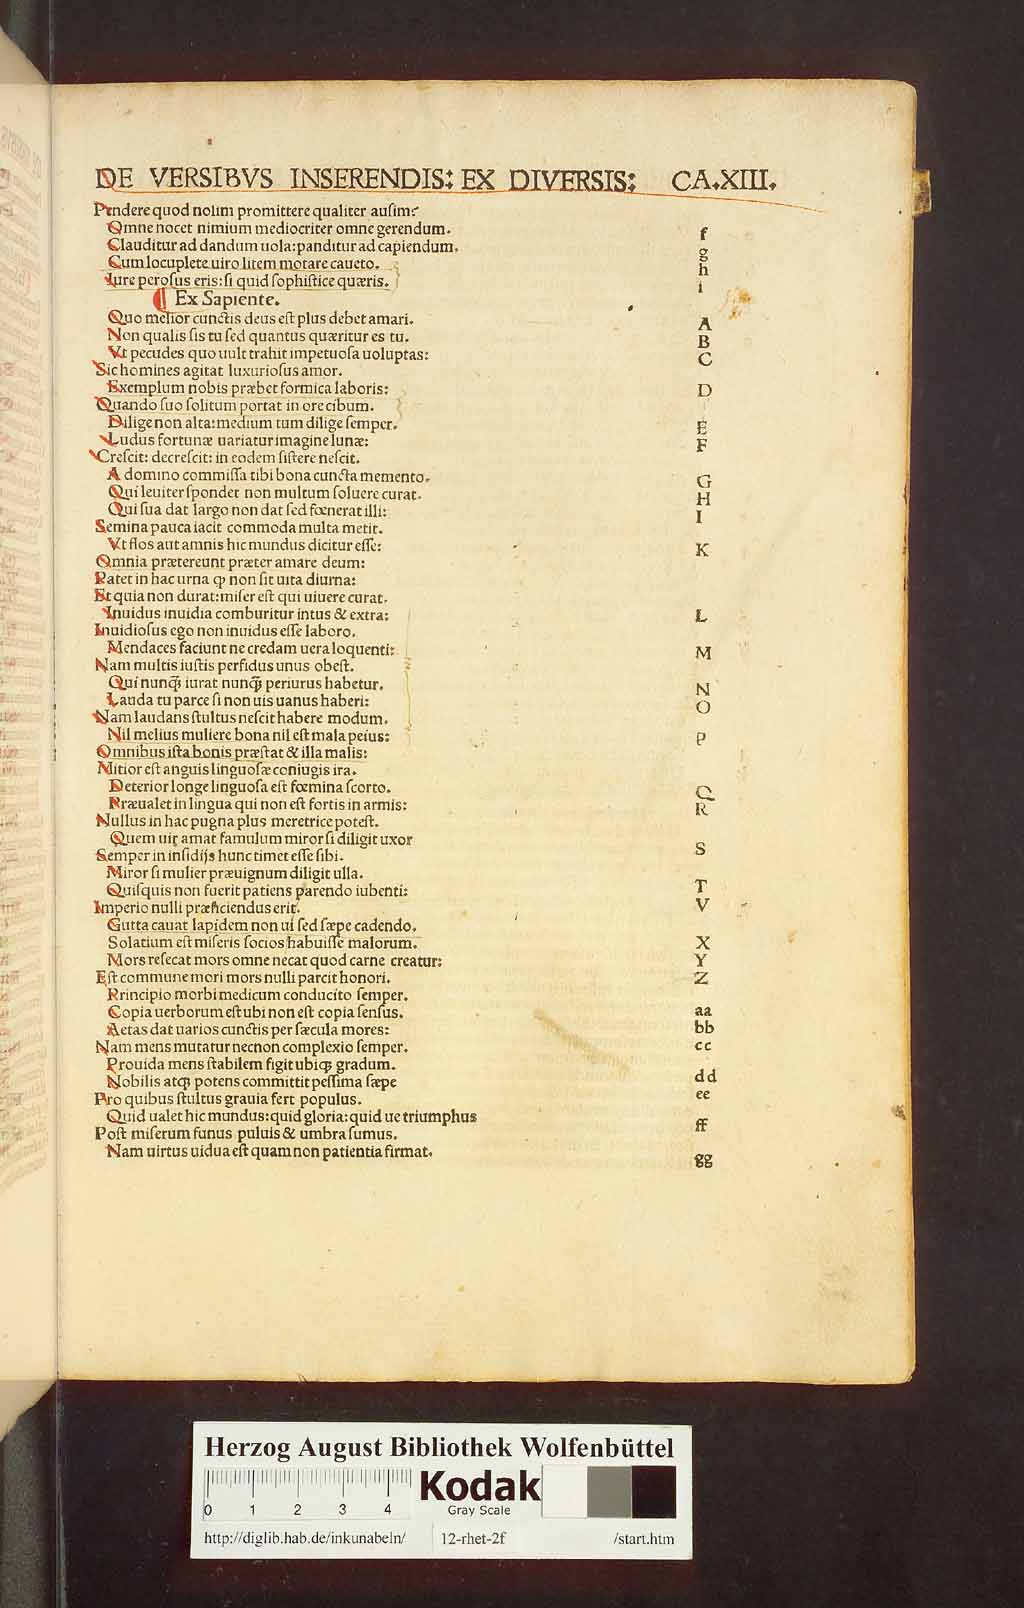 DE VERSIBVS INSERENDIS: EX DIVERSIS: CA.XIII.
Pendere quod nolim promittere qualiter ausim?
Omne nocet nimium mediocriter omne gerendum. f
Clauditur ad dandum uola: panditur ad capiendum. g
Cum locuplete uiro litem motare caueto. h
Iure perosus eris: si quid sophistice quæris. i
¶ Ex Sapiente.
Quo melior cunctis deus est plus debet amari. A
Non qualis sis tu sed quantus quæritur es tu. B
Vt pecudes quo uult trahit impetuosa uoluptas: C
Sic homines agitat luxuriosus amor.
Exemplum nobis præbet formica laboris: D
Quando suo solitum portat in ore cibum.
Dilige non alta: medium tum dilige semper. E
Ludus fortunæ uariatur imagine lunæ: F
Crescit: decrescit: in eodem sistere nescit.
A domino commissa tibi bona cuncta memento. G
Qui leuiter spondet non multum soluere curat. H
Qui sua dat largo non dat sed fœnerat illi: I
Semina pauca iacit commoda multa metit.
Vt flos aut amnis hic mundus dicitur esse: K
Omnia prætereunt præter amare deum:
Patet in hac urna ꝙ non sit uita diurna:
Et quia non durat: miser est qui uiuere curat.
Inuidus inuidia comburitur intus & extra: L
Inuidiosus ego non inuidus esse laboro.
Mendaces faciunt ne credam uera loquenti: M
Nam multis iustis perfidus unus obest.
Qui nunꝙ̃ iurat nunꝙ̃ periurus habetur. N
Lauda tu parce si non uis uanus haberi: O
Nam laudans stultus nescit habere modum.
Nil melius muliere bona nil est mala peius: P
Omnibus ista bonis præstat & illa malis:
Mitior est anguis linguosæ coniugis ira.
Deterior longe linguosa est fœmina scorto. Q
Præualet in lingua qui non est fortis in armis: R
Nullus in hac pugna plus meretrice potest.
Quem uir amat famulum miror si diligit uxor S
Semper in insidijs hunc timet esse sibi.
Miror si mulier præuignum diligit ulla. T
Quisquis non fuerit patiens parendo iubenti: V
Imperio nulli præficiendus erit.
Gutta cauat lapidem non ui sed sæpe cadendo. X
Solatium est miseris socios habuisse malorum. Y
Mors resecat mors omne necat quod carne creatur: Z
Est commune mori mors nulli parcit honori.
Principio morbi medicum conducito semper. aa
Copia uerborum est ubi non est copia sensus. bb
Aetas dat uarios cunctis per sæcula mores: cc
Nam mens mutatur necnon complexio semper.
Prouida mens stabilem figit ubiqꝫ gradum. dd
Nobilis atqꝫ potens committit pessima sæpe ee
Pro quibus stultus grauia fert populus.
Quid ualet hic mundus: quid gloria: quid ue triumphus ff
Post miserum funus puluis & umbra sumus.
Nam uirtus uidua est quam non patientia firmat. gg
Herzog August Bibliothek Wolfenbüttel
0 1 2 3 4
Kodak
Gray Scale
http://diglib.hab.de/inkunabeln/ 12-rhet-2f /start.htm